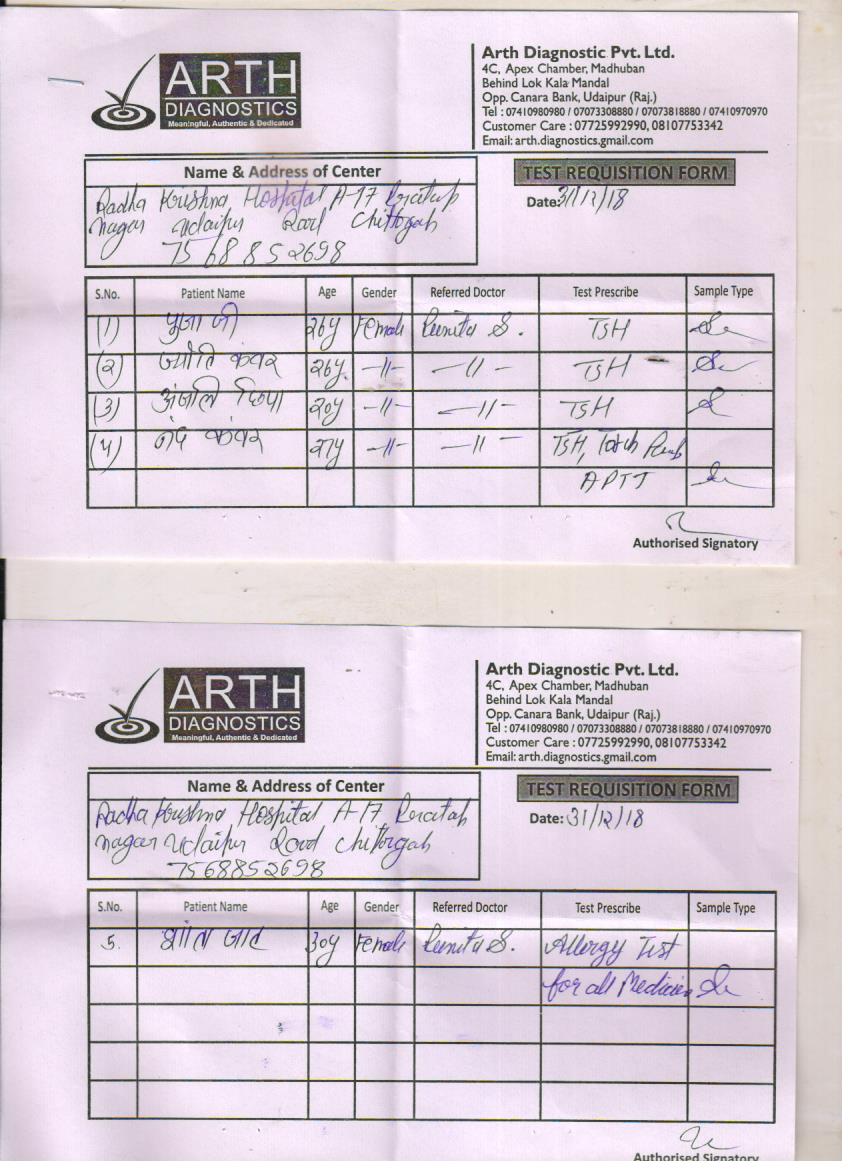 ARTH
DIAGNOSTICS
Meaningful, Authentic & Dedicated
Arth Diagnostic Pvt. Ltd.
4C, Apex Chamber, Madhuban
Behind Lok Kala Mandal
Opp. Canara Bank, Udaipur (Raj.)
Tel : 07410980980 / 07073308880 / 07073818880 / 07410970970
Customer Care : 07725992990, 08107753342
Email: arth.diagnostics.gmail.com
Name & Address of Center
TEST REQUISITION FORM
Radha Krishna Hospital A-17
Date: 31/12/18
nagar Udaipur Road Chittorgah
7568852698
S.No. Patient Name Age Gender Referred Doctor Test Prescribe Sample Type
(1) पुजा जी 26y Female S. TSH
(2) ज्योति कंवर 26y. -11- -11- TSH
(3) अंजलि 20y -11- -11- TSH
(4) कंवर 27y -11- -11- TSH,
APTT
Authorised Signatory
ARTH
DIAGNOSTICS
Meaningful, Authentic & Dedicated
Arth Diagnostic Pvt. Ltd.
4C, Apex Chamber, Madhuban
Behind Lok Kala Mandal
Opp. Canara Bank, Udaipur (Raj.)
Tel : 07410980980 / 07073308880 / 07073818880 / 07410970970
Customer Care : 07725992990, 08107753342
Email: arth.diagnostics.gmail.com
Name & Address of Center
TEST REQUISITION FORM
Radha Krishna Hospital A-17
Date: 31/12/18
nagar Udaipur Road Chittorgah
7568852698
S.No. Patient Name Age Gender Referred Doctor Test Prescribe Sample Type
5. जाट 30y Female S. Allergy Test
for all Medicine
Authorised Signatory